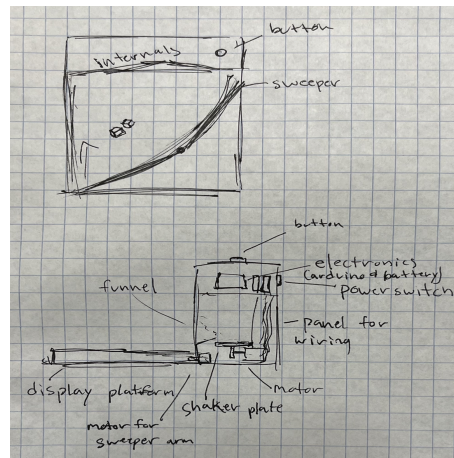 button
internals
sweeper
button
electronics
(arduino & battery)
power switch
funnel
panel for
wiring
display platform
motor
shaker plate
motor for
sweeper arm